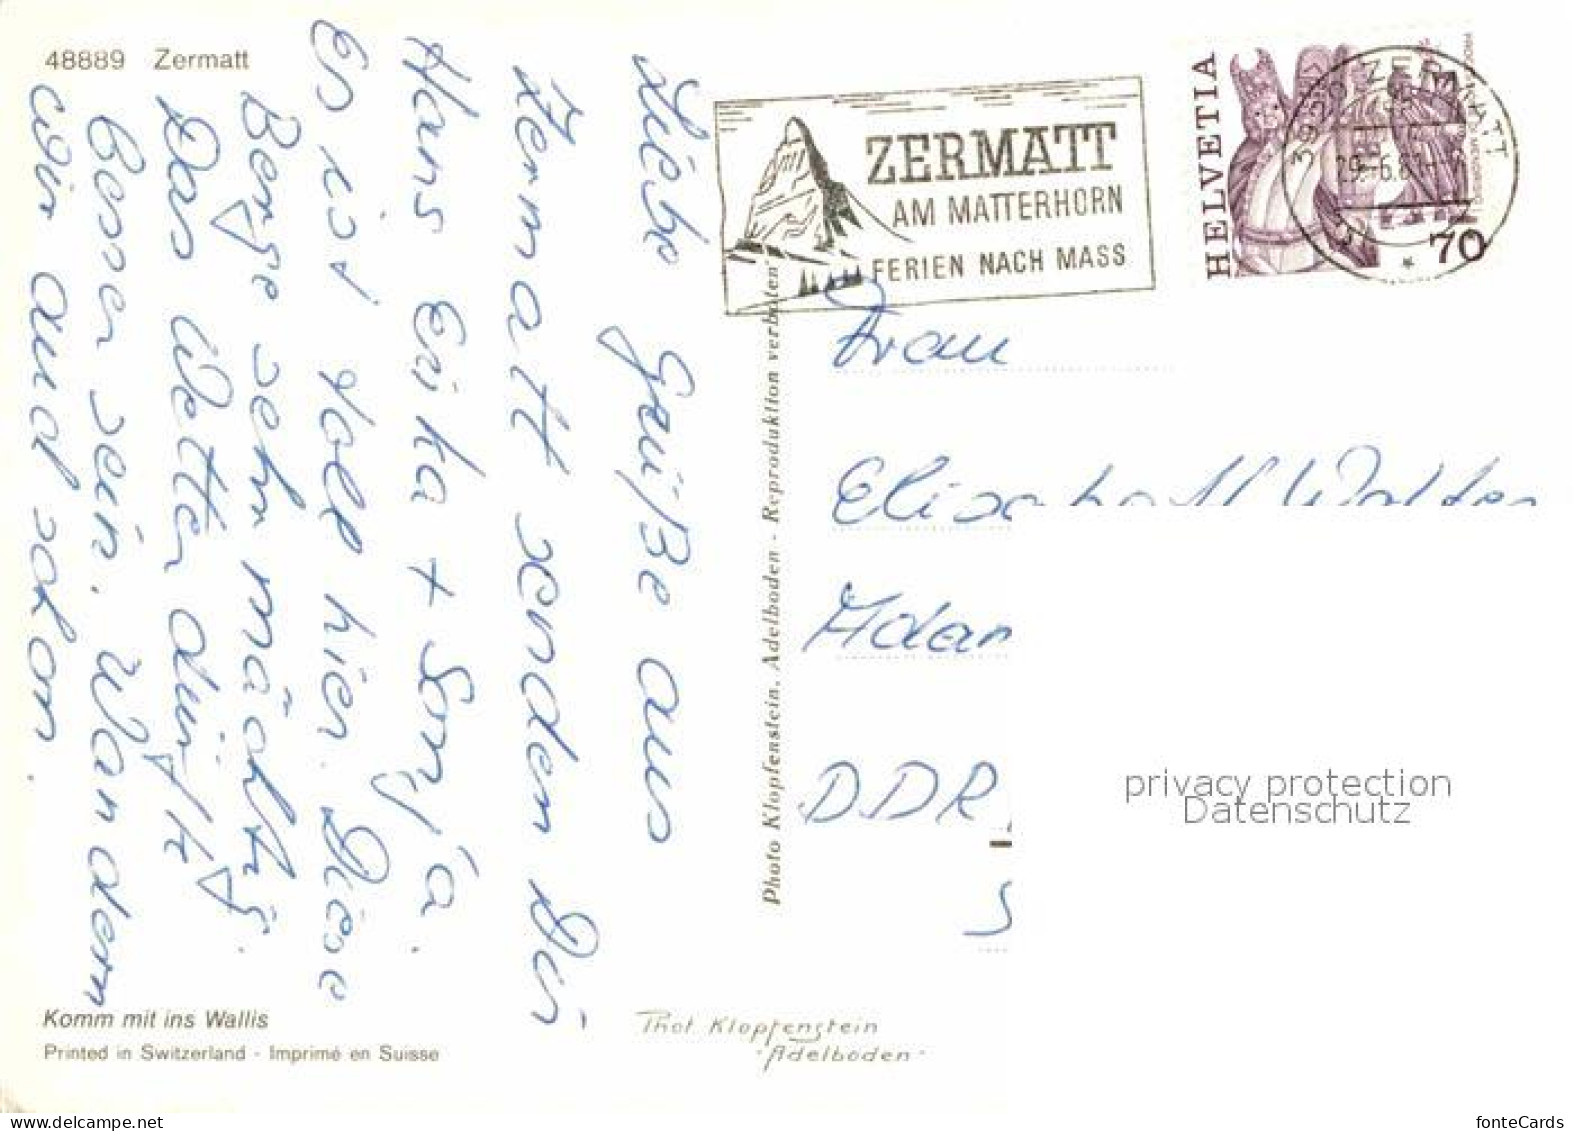 48889 Zermatt
Liebe Grüße aus
Zermatt senden Dir
Hans Erika + Sonja.
Es ist toll hier. Diese
Berge sehr mächtig.
Das Wetter dürfte
besser sein. Wandern
wir auch schon.
Komm mit ins Wallis
Printed in Switzerland - Imprimé en Suisse
Photo Klopfenstein, Adelboden - Reproduktion verboten
Phot Klopfenstein
- Adelboden -
ZERMATT
AM MATTERHORN
FERIEN NACH MASS
HELVETIA
70
3920 ZERMATT
Frau
DDR
privacy protection
Datenschutz
fonteCards